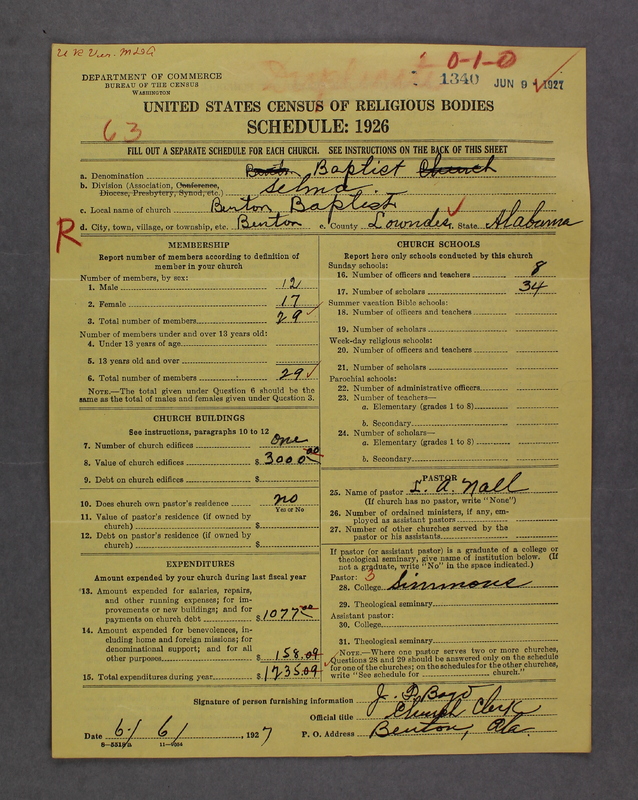 U R Ver. M L G
0-1-0
Duplicate
1340 JUN 9 1927
DEPARTMENT OF COMMERCE
BUREAU OF THE CENSUS
WASHINGTON
UNITED STATES CENSUS OF RELIGIOUS BODIES
63
SCHEDULE: 1926
FILL OUT A SEPARATE SCHEDULE FOR EACH CHURCH. SEE INSTRUCTIONS ON THE BACK OF THIS SHEET
a. Denomination Benton Baptist Church
b. Division (Association, Conference, Diocese, Presbytery, Synod, etc.) Selma
c. Local name of church Benton Baptist
R
d. City, town, village, or township, etc. Benton e. County Lowndes, State Alabama
MEMBERSHIP
Report number of members according to definition of
member in your church
Number of members, by sex:
1. Male 12
2. Female 17
3. Total number of members 29
Number of members under and over 13 years old:
4. Under 13 years of age
5. 13 years old and over
6. Total number of members 29
NOTE.—The total given under Question 6 should be the
same as the total of males and females given under Question 3.
CHURCH BUILDINGS
See instructions, paragraphs 10 to 12
7. Number of church edifices One
8. Value of church edifices $ 3000.00
9. Debt on church edifices $
10. Does church own pastor's residence no
Yes or No
11. Value of pastor's residence (if owned by
church) $
12. Debt on pastor's residence (if owned by
church) $
EXPENDITURES
Amount expended by your church during last fiscal year
13. Amount expended for salaries, repairs,
and other running expenses; for im-
provements or new buildings; and for
payments on church debt $ 1077.00
14. Amount expended for benevolences, in-
cluding home and foreign missions; for
denominational support; and for all
other purposes $ 158.09
15. Total expenditures during year $ 1235.09
CHURCH SCHOOLS
Report here only schools conducted by this church
Sunday schools:
16. Number of officers and teachers 8
17. Number of scholars 34
Summer vacation Bible schools:
18. Number of officers and teachers
19. Number of scholars
Week-day religious schools:
20. Number of officers and teachers
21. Number of scholars
Parochial schools:
22. Number of administrative officers
23. Number of teachers—
a. Elementary (grades 1 to 8)
b. Secondary
24. Number of scholars—
a. Elementary (grades 1 to 8)
b. Secondary
PASTOR
25. Name of pastor L. A. Nall
(If church has no pastor, write "None")
26. Number of ordained ministers, if any, em-
ployed as assistant pastors
27. Number of other churches served by the
pastor or his assistants 3
If pastor (or assistant pastor) is a graduate of a college or
theological seminary, give name of institution below. (If
not a graduate, write "No" in the space indicated.)
Pastor:
28. College Simmons
29. Theological seminary
Assistant pastor:
30. College
31. Theological seminary
NOTE.—Where one pastor serves two or more churches,
Questions 28 and 29 should be answered only on the schedule
for one of the churches; on the schedules for the other churches,
write "See schedule for church."
Signature of person furnishing information
Official title Church Clerk
Date 6/6/, 1927 P. O. Address Benton, Ala.
8—5318a 11—9054